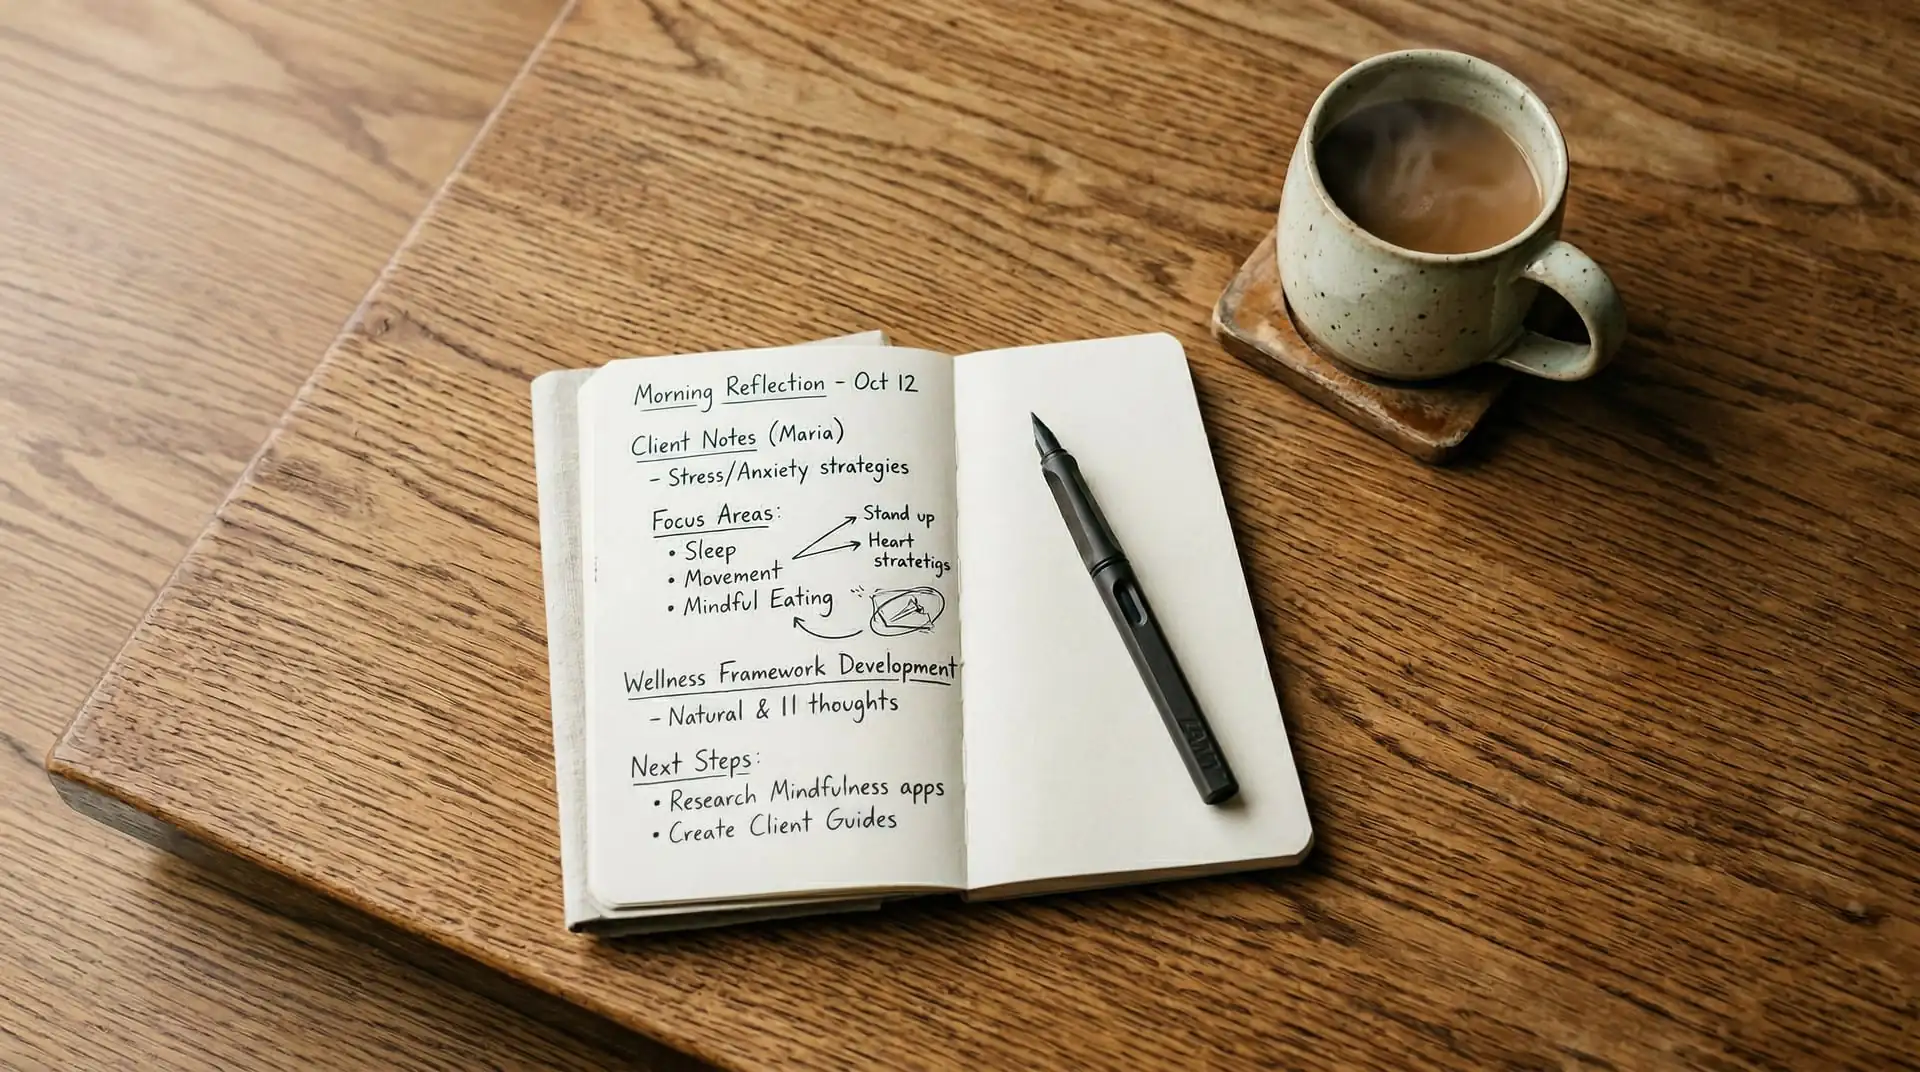 Morning Reflection - Oct 12
Client Notes (Maria)
- Stress/Anxiety strategies
Focus Areas:
• Sleep
• Movement
• Mindful Eating
Stand up
Heart
stratetigs
Wellness Framework Development
- Natural & 11 thoughts
Next Steps:
• Research Mindfulness apps
• Create Client Guides